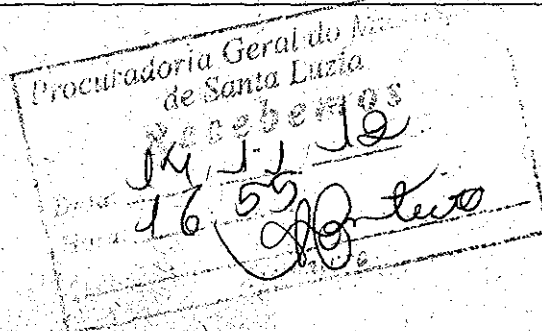 Procuradoria Geral do
de Santa Luzia
Recebemos
Data: 14 / 11 / 12
Hora: 16 55